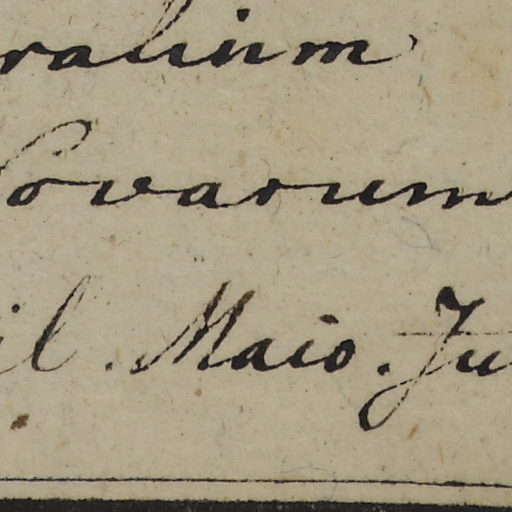 ralium
ovarum
il. Maio. Ju